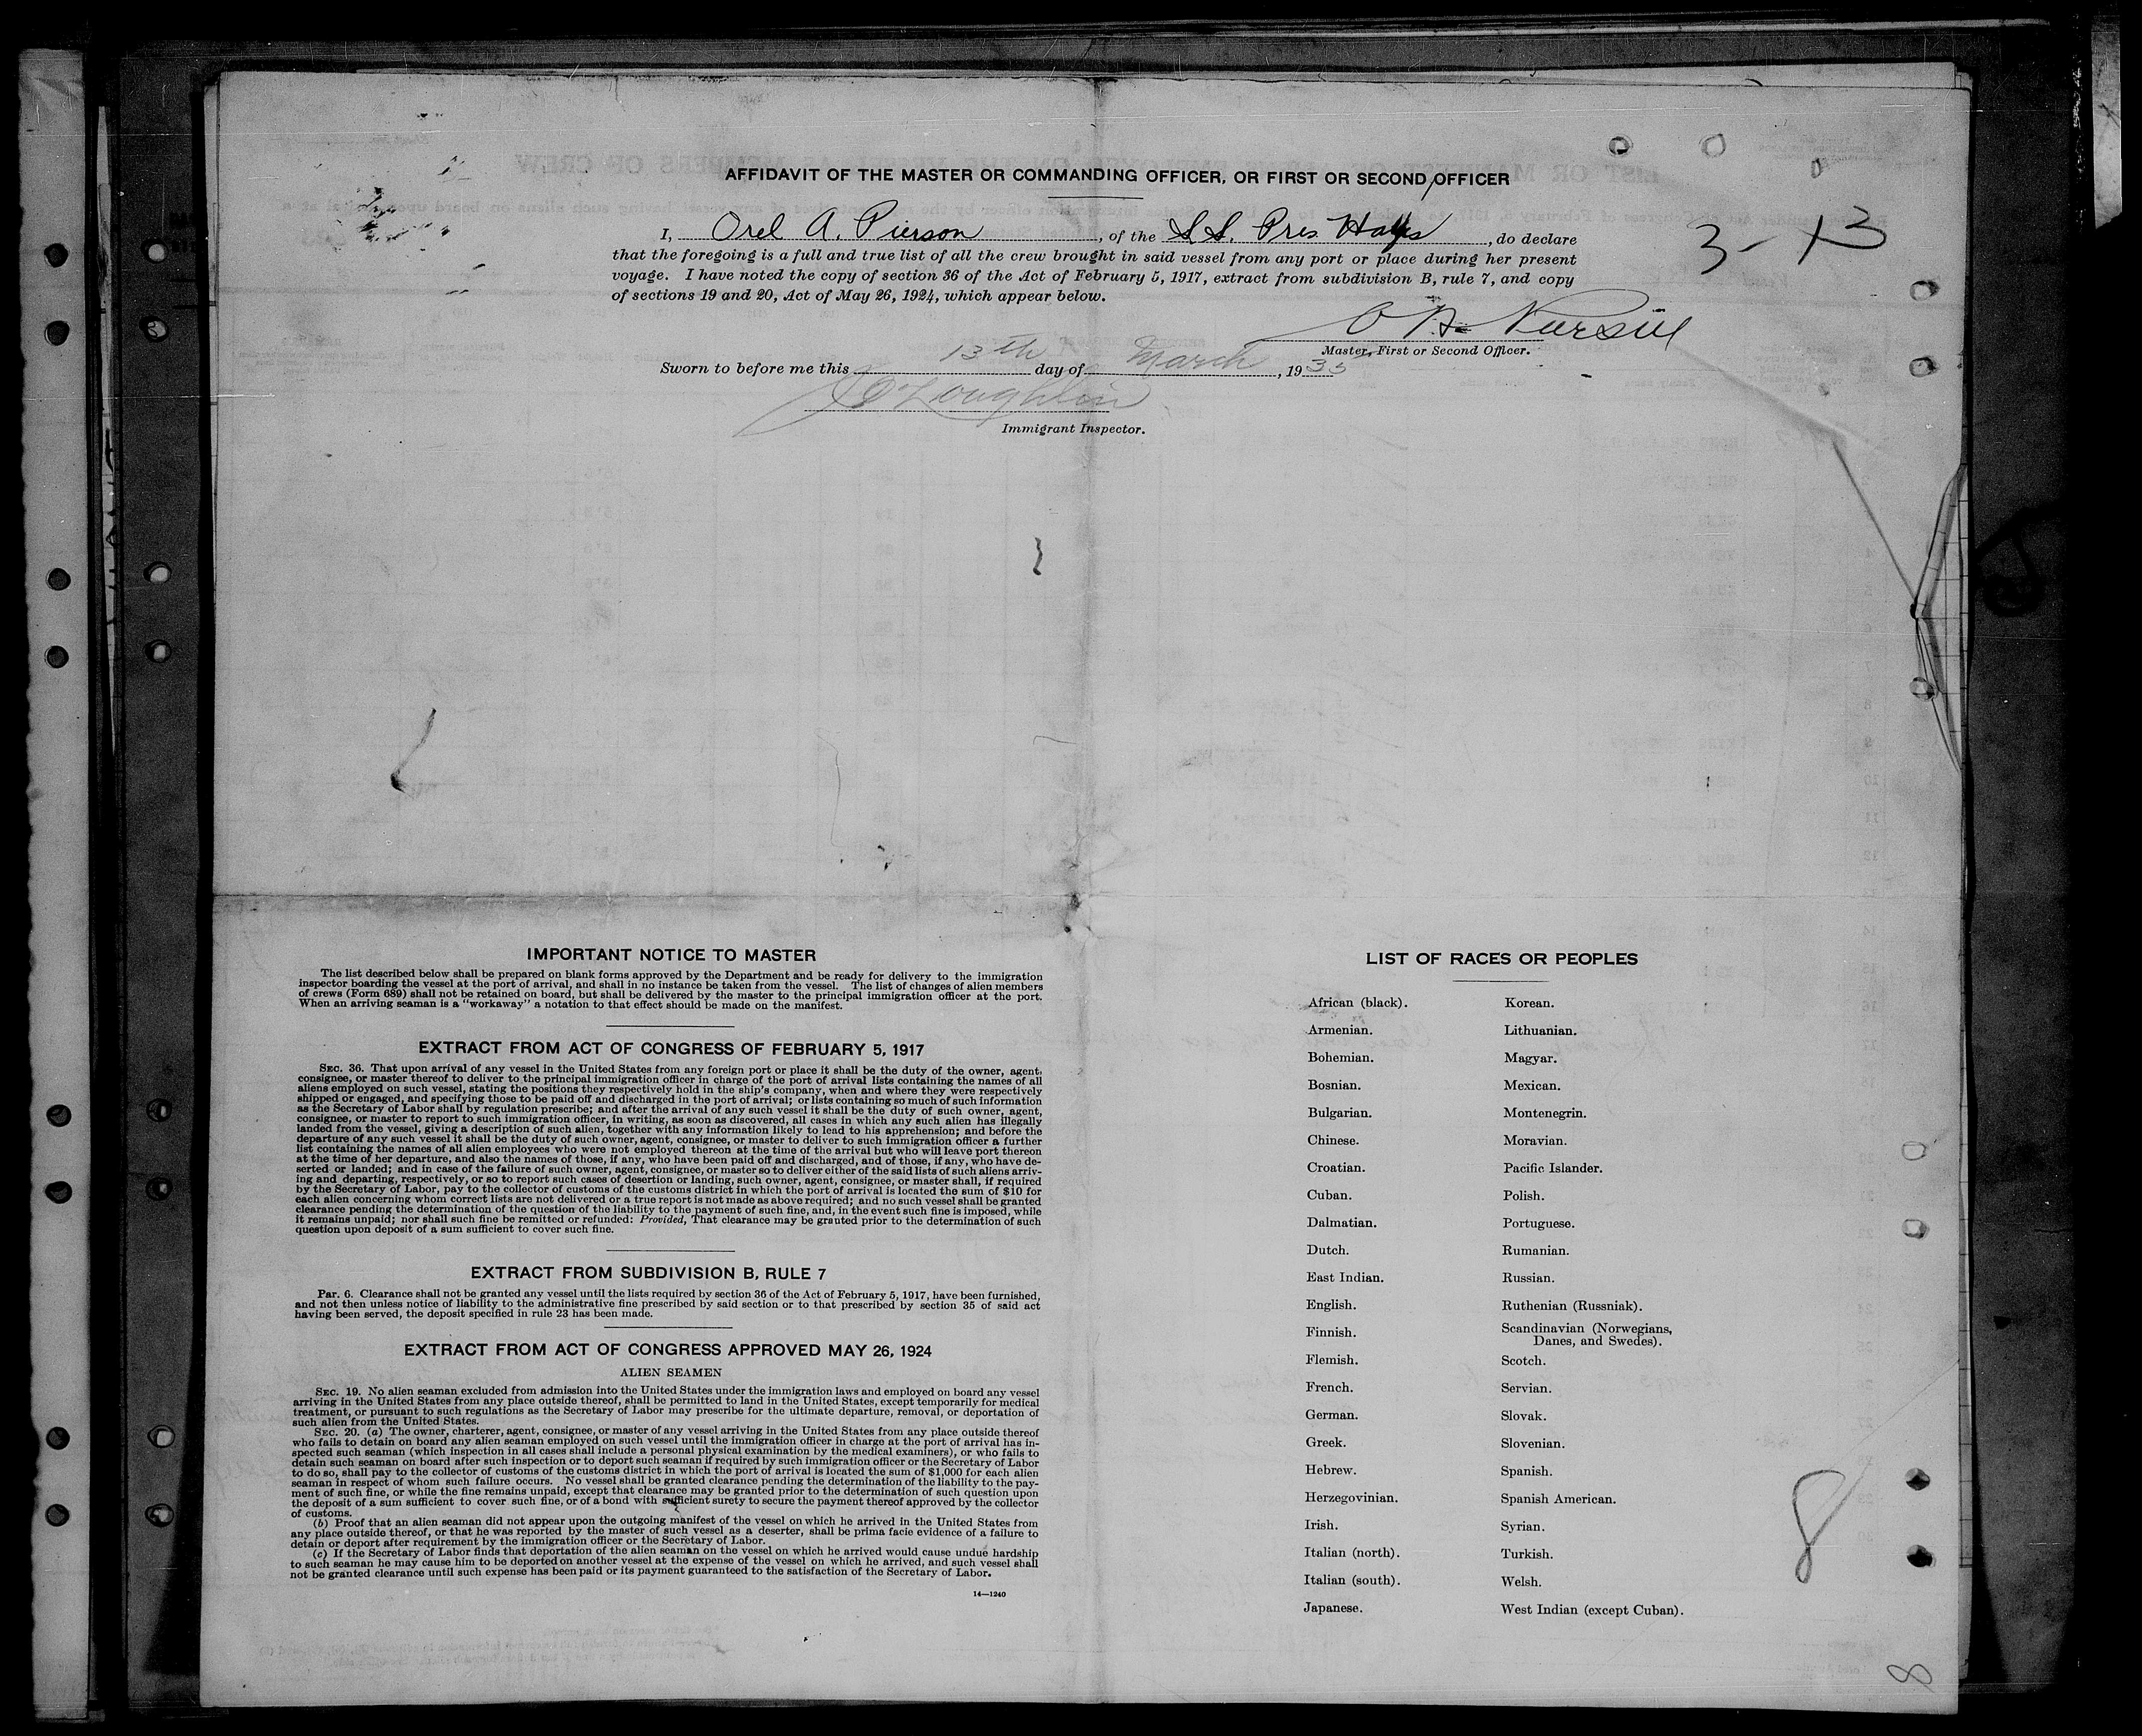 AFFIDAVIT OF THE MASTER OR COMMANDING OFFICER, OR FIRST OR SECOND OFFICER
I, Orel A. Pierson, of the S.S. Pres. Hayes, do declare
that the foregoing is a full and true list of all the crew brought in said vessel from any port or place during her present
voyage. I have noted the copy of section 36 of the Act of February 5, 1917, extract from subdivision B, rule 7, and copy
of sections 19 and 20, Act of May 26, 1924, which appear below.
3-13
Master, First or Second Officer.
Sworn to before me this 13th day of March, 1935
O'Loughlin
Immigrant Inspector.
IMPORTANT NOTICE TO MASTER
The list described below shall be prepared on blank forms approved by the Department and be ready for delivery to the immigration
inspector boarding the vessel at the port of arrival, and shall in no instance be taken from the vessel. The list of changes of alien members
of crews (Form 689) shall not be retained on board, but shall be delivered by the master to the principal immigration officer at the port.
When an arriving seaman is a "workaway" a notation to that effect should be made on the manifest.
EXTRACT FROM ACT OF CONGRESS OF FEBRUARY 5, 1917
SEC. 36. That upon arrival of any vessel in the United States from any foreign port or place it shall be the duty of the owner, agent,
consignee, or master thereof to deliver to the principal immigration officer in charge of the port of arrival lists containing the names of all
aliens employed on such vessel, stating the positions they respectively hold in the ship's company, when and where they were respectively
shipped or engaged, and specifying those to be paid off and discharged in the port of arrival; or lists containing so much of such information
as the Secretary of Labor shall by regulation prescribe; and after the arrival of any such vessel it shall be the duty of such owner, agent,
consignee, or master to report to such immigration officer, in writing, as soon as discovered, all cases in which any such alien has illegally
landed from the vessel, giving a description of such alien, together with any information likely to lead to his apprehension; and before the
departure of any such vessel it shall be the duty of such owner, agent, consignee, or master to deliver to such immigration officer a further
list containing the names of all alien employees who were not employed thereon at the time of the arrival but who will leave port thereon
at the time of her departure, and also the names of those, if any, who have been paid off and discharged, and of those, if any, who have de-
serted or landed; and in case of the failure of such owner, agent, consignee, or master so to deliver either of the said lists of such aliens arriv-
ing and departing, respectively, or so to report such cases of desertion or landing, such owner, agent, consignee, or master shall, if required
by the Secretary of Labor, pay to the collector of customs of the customs district in which the port of arrival is located the sum of $10 for
each alien concerning whom correct lists are not delivered or a true report is not made as above required; and no such vessel shall be granted
clearance pending the determination of the question of the liability to the payment of such fine, and, in the event such fine is imposed, while
it remains unpaid; nor shall such fine be remitted or refunded: Provided, That clearance may be granted prior to the determination of such
question upon deposit of a sum sufficient to cover such fine.
EXTRACT FROM SUBDIVISION B, RULE 7
Par. 6. Clearance shall not be granted any vessel until the lists required by section 36 of the Act of February 5, 1917, have been furnished,
and not then unless notice of liability to the administrative fine prescribed by said section or to that prescribed by section 35 of said act
having been served, the deposit specified in rule 23 has been made.
EXTRACT FROM ACT OF CONGRESS APPROVED MAY 26, 1924
ALIEN SEAMEN
SEC. 19. No alien seaman excluded from admission into the United States under the immigration laws and employed on board any vessel
arriving in the United States from any place outside thereof, shall be permitted to land in the United States, except temporarily for medical
treatment, or pursuant to such regulations as the Secretary of Labor may prescribe for the ultimate departure, removal, or deportation of
such alien from the United States.
SEC. 20. (a) The owner, charterer, agent, consignee, or master of any vessel arriving in the United States from any place outside thereof
who fails to detain on board any alien seaman employed on such vessel until the immigration officer in charge at the port of arrival has in-
spected such seaman (which inspection in all cases shall include a personal physical examination by the medical examiners), or who fails to
detain such seaman on board after such inspection or to deport such seaman if required by such immigration officer or the Secretary of Labor
to do so, shall pay to the collector of customs of the customs district in which the port of arrival is located the sum of $1,000 for each alien
seaman in respect of whom such failure occurs. No vessel shall be granted clearance pending the determination of the liability to the pay-
ment of such fine, or while the fine remains unpaid, except that clearance may be granted prior to the determination of such question upon
the deposit of a sum sufficient to cover such fine, or of a bond with sufficient surety to secure the payment thereof approved by the collector
of customs.
(b) Proof that an alien seaman did not appear upon the outgoing manifest of the vessel on which he arrived in the United States from
any place outside thereof, or that he was reported by the master of such vessel as a deserter, shall be prima facie evidence of a failure to
detain or deport after requirement by the immigration officer or the Secretary of Labor.
(c) If the Secretary of Labor finds that deportation of the alien seaman on the vessel on which he arrived would cause undue hardship
to such seaman he may cause him to be deported on another vessel at the expense of the vessel on which he arrived, and such vessel shall
not be granted clearance until such expense has been paid or its payment guaranteed to the satisfaction of the Secretary of Labor.
14—1240
LIST OF RACES OR PEOPLES
African (black).
Armenian.
Bohemian.
Bosnian.
Bulgarian.
Chinese.
Croatian.
Cuban.
Dalmatian.
Dutch.
East Indian.
English.
Finnish.
Flemish.
French.
German.
Greek.
Hebrew.
Herzegovinian.
Irish.
Italian (north).
Italian (south).
Japanese.
Korean.
Lithuanian.
Magyar.
Mexican.
Montenegrin.
Moravian.
Pacific Islander.
Polish.
Portuguese.
Rumanian.
Russian.
Ruthenian (Russniak).
Scandinavian (Norwegians,
Danes, and Swedes).
Scotch.
Servian.
Slovak.
Slovenian.
Spanish.
Spanish American.
Syrian.
Turkish.
Welsh.
West Indian (except Cuban).
8
8